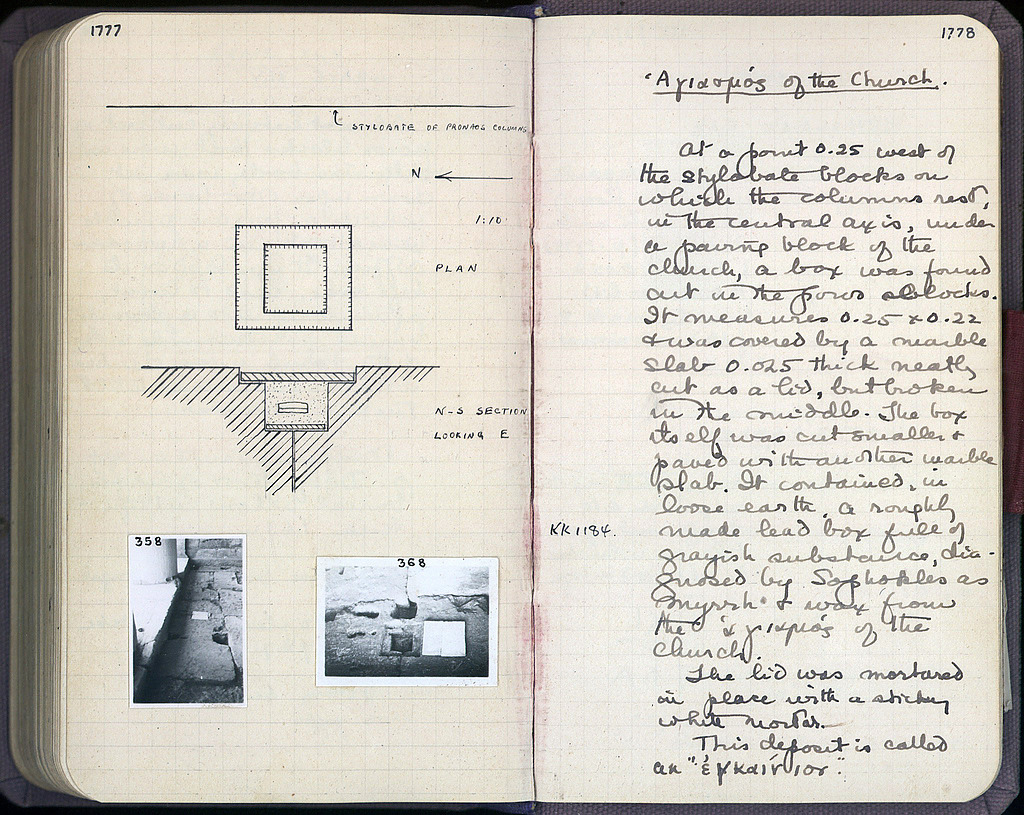 1777
STYLOBATE OF PRONAOS COLUMNS
N
1:10
PLAN
N-S SECTION
LOOKING E
358
368
1778
Ἁγιασμός of the Church.
At a point 0.25 west of
the stylobate blocks on
which the columns rest,
in the central axis, under
a paving block of the
church, a box was found
cut in the poros blocks.
It measures 0.25 x 0.22
& was covered by a marble
slab 0.025 thick neatly
cut as a lid, but broken
in the middle. The box
itself was cut smaller &
paved with another marble
slab. It contained, in
loose earth, a roughly
KK 1184.
made lead box full of
grayish substance, dia-
gnosed by Sophokles as
myrrh & wax from
the ἁγιασμός of the
Church.
The lid was mortared
in place with a sticky
white mortar.
This deposit is called
an "ἐγκαίνιον."